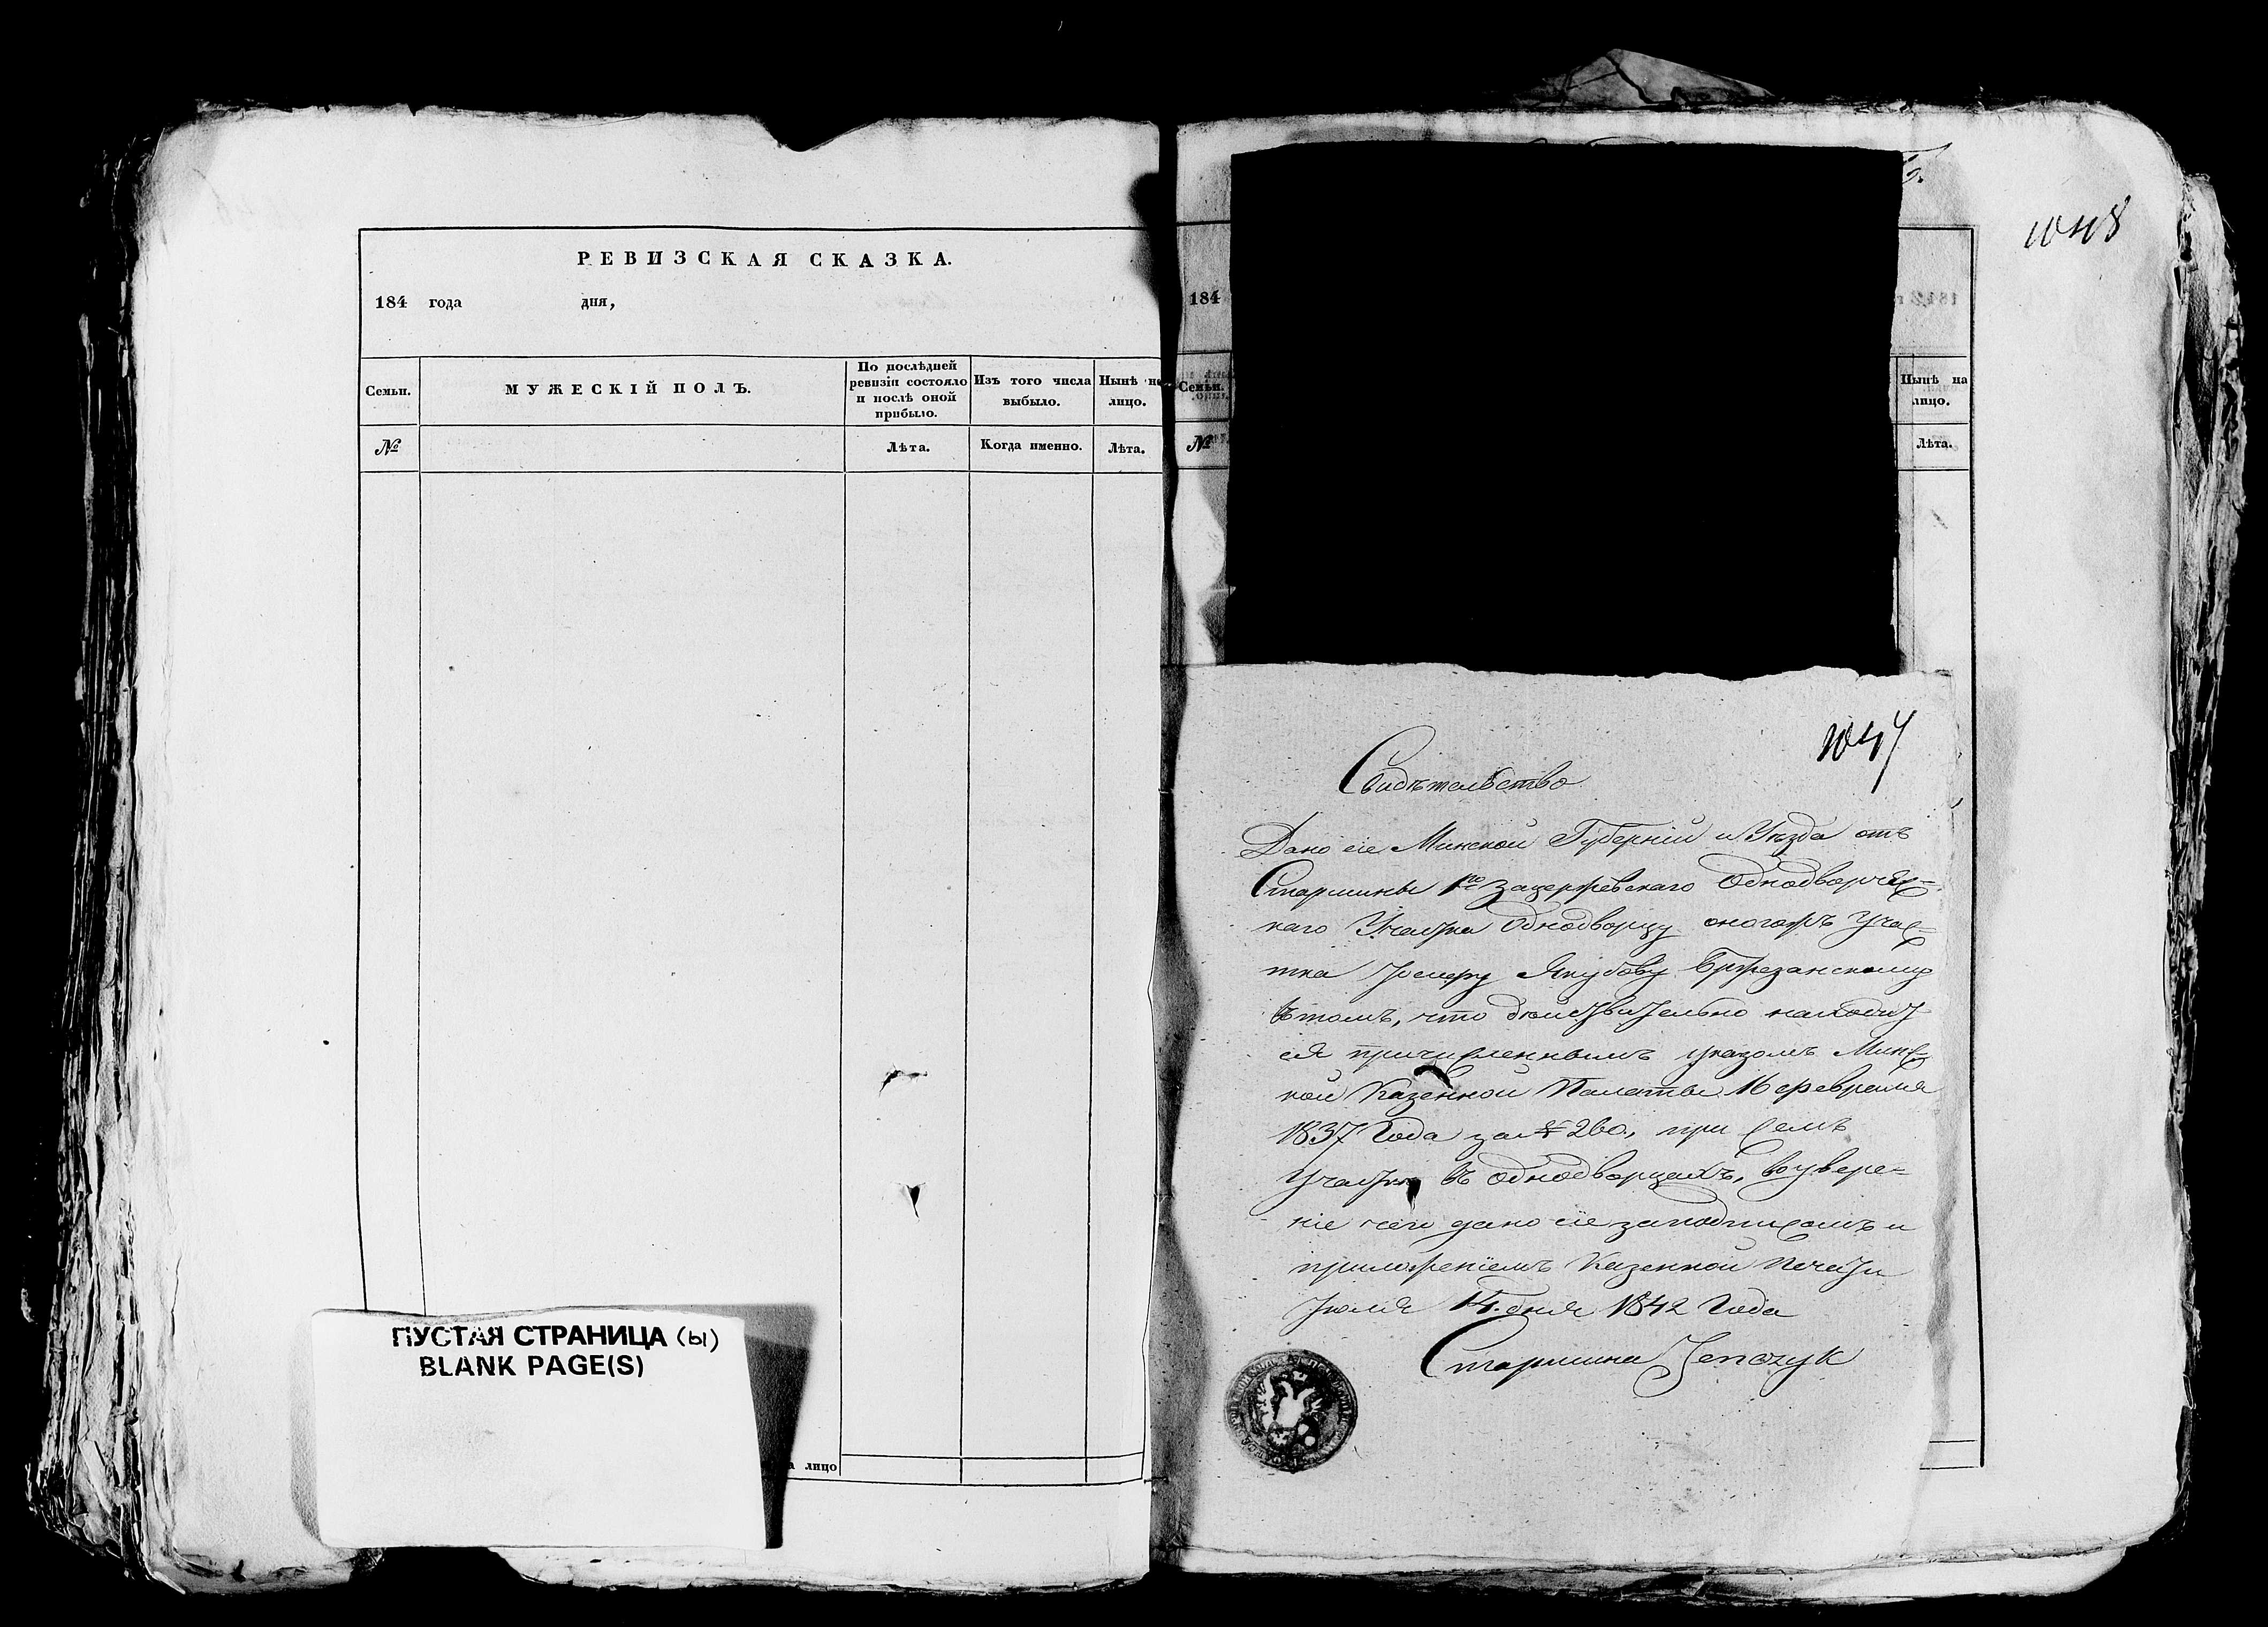 РЕВИЗСКАЯ СКАЗКА.
184 года дня,
Семьи.
МУЖЕСКІЙ ПОЛЪ.
По послѣдней
ревизіи состояло
и послѣ оной
прибыло.
Изъ того числа
выбыло.
Нынѣ на
лицо.
№
Лѣта.
Когда именно.
Лѣта.
лицо
ПУСТАЯ СТРАНИЦА (ы)
BLANK PAGE(S)
1048
184
Семьи.
№
Нынѣ на
лицо.
Лѣта.
1047
Свидѣтельство
Дано сіе Минской Губерніи и Уѣзда отъ
Старшины 1го Зацержевскаго Однодворчес=
каго Участка Однодворцу оногожъ Учас=
тка Іосифу Якубову Бржезанскому
Втомъ, что дѣйствительно находит
ся причисленнымъ указомъ Минс=
кой Казенной Палаты 16 февраля
1837 Года за № 260, при семъ
Участкѣ въ однодворцахъ, воувере=
ніе чего дано сіе заподписомъ и
приложеніемъ Казенной Печати
Іюля 14 дня 1842 Года
Старшина Jenczyk